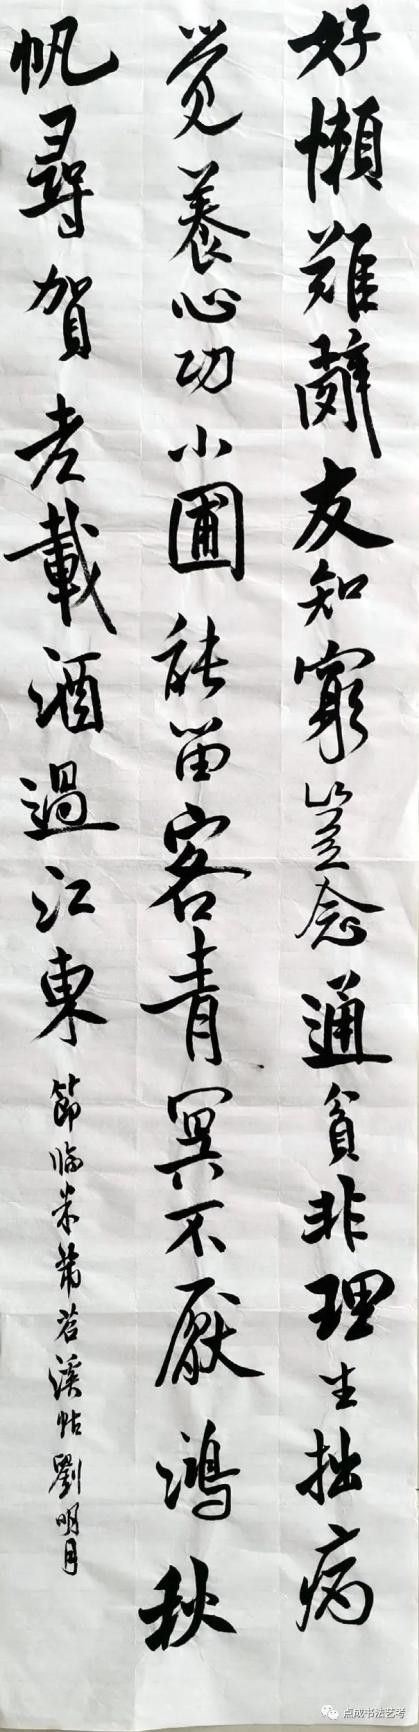 好懶難辭友知窮豈念通貧非理生拙病
覺養心功小圃能留客青冥不厭鴻秋
帆尋賀老載酒過江東
節臨米芾苕溪帖劉明月
点成书法艺考